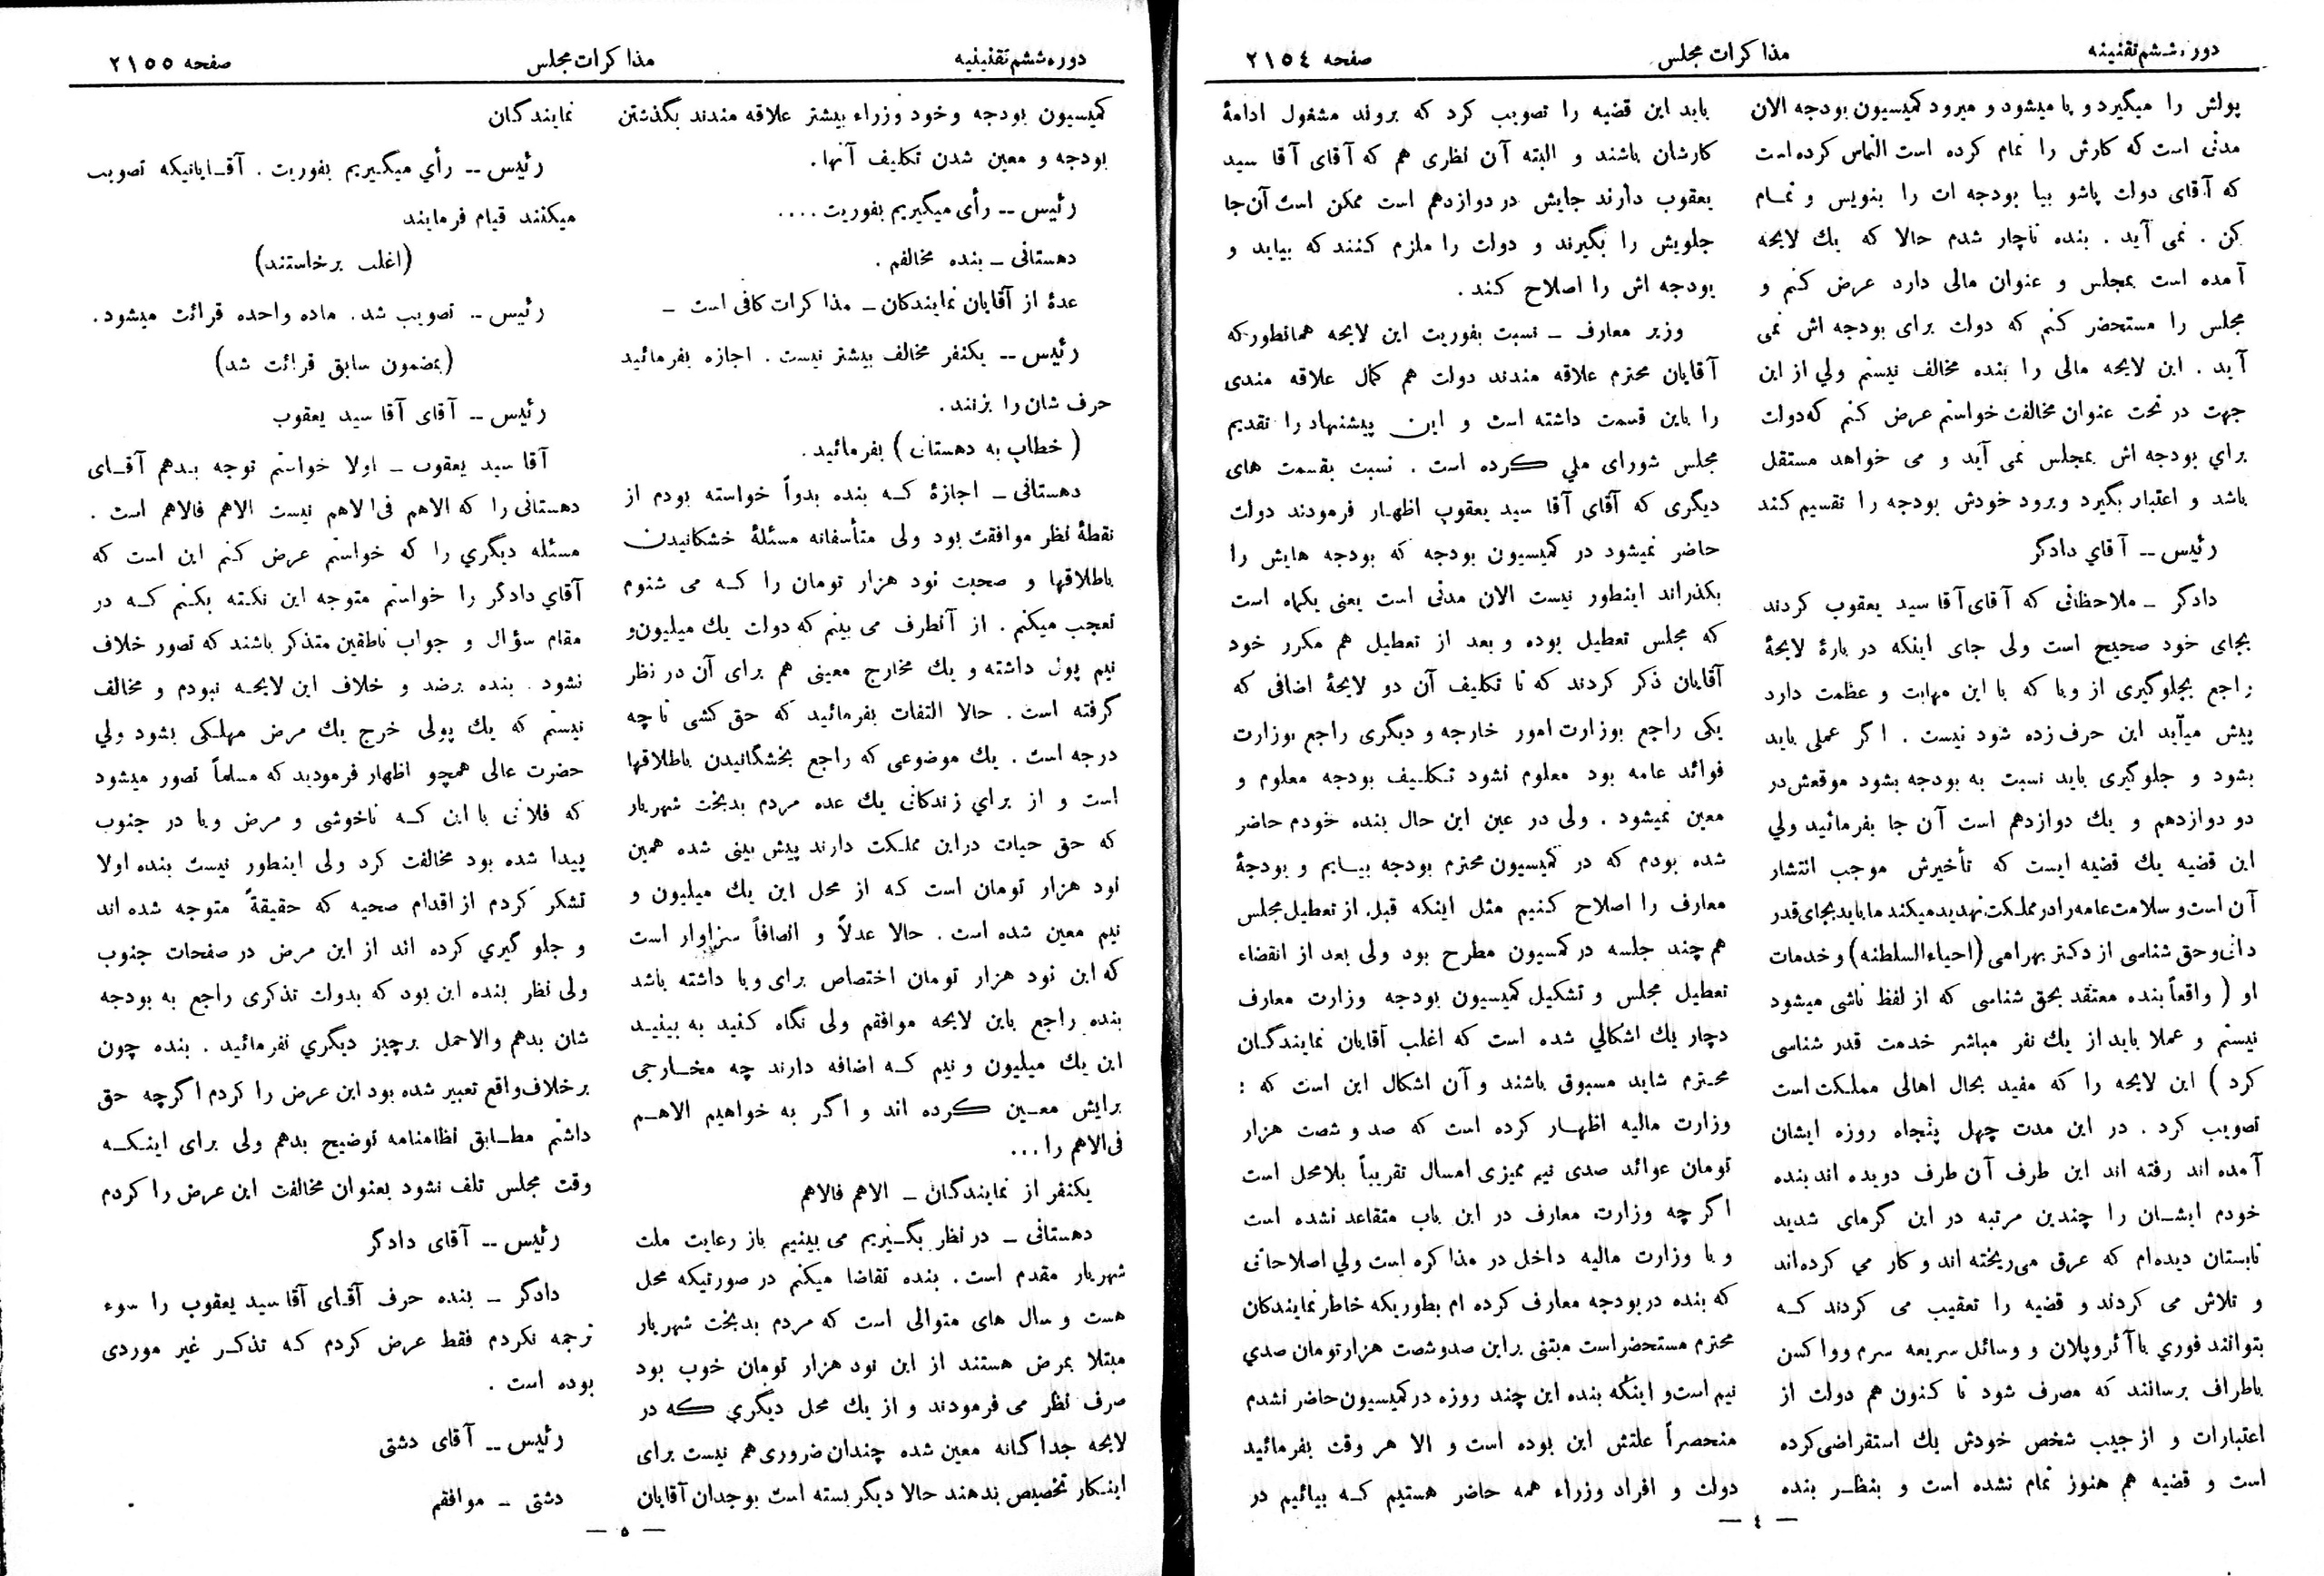 دوره ششم تقنینه
مذاکرات مجلس
صفحه ۲۱۵٤
پولش را میگیرد و پا میشود و میرود کمیسیون بودجه الان
مدتی است که کارش را تمام کرده است التماس کرده است
که آقای دولت پاشو بیا بودجه ات را بنویس و تمام
کن . نمی آید . بنده ناچار شدم حالا که یك لایحه
آمده است بمجلس و عنوان مالی دارد عرض کنم و
مجلس را مستحضر کنم که دولت برای بودجه اش نمی
آید . این لایحه مالی را بنده مخالف نیستم ولي از این
جهت در تحت عنوان مخالفت خواستم عرض کنم که دولت
براي بودجه اش بمجلس نمی آید و می خواهد مستقل
باشد و اعتبار بگیرد و برود خودش بودجه را تقسیم کند
رئیس -- آقاي دادگر
دادگر ـ ملاحظاتی که آقای آقا سید یعقوب کردند
بجای خود صحیح است ولی جای اینکه در بارۀ لایحۀ
راجع بجلوگیری از وبا که با این مهابت و عظمت دارد
پیش میآید این حرف زده شود نیست . اگر عملی باید
بشود و جلوگیری باید نسبت به بودجه بشود موقعش در
دو دوازدهم و یك دوازدهم است آن جا بفرمائید ولي
این قضیه یك قضیه ایست که تأخیرش موجب انتشار
آن است و سلامت عامه را در مملکت تهدید میکند ما باید بجای قدر
دانی و حق شناسی از دکتر بهرامی (احیاء السلطنه) و خدمات
او ( واقعاً بنده معتقد بحق شناسی که از لفظ ناشی میشود
نیستم و عملا باید از یك نفر مباشر خدمت قدر شناسی
کرد ) این لایحه را که مفید بحال اهالی مملکت است
تصویب کرد . در این مدت چهل پنجاه روزه ایشان
آمده اند رفته اند این طرف آن طرف دویده اند بنده
خودم ایشان را چندین مرتبه در این گرمای شدید
تابستان دیده ام که عرق می ریخته اند و کار می کرده اند
و تلاش می کردند و قضیه را تعقیب می کردند که
بتوانند فوري با آئروپلان و وسائل سریعه سرم و واکسن
باطراف برسانند که مصرف شود تا کنون هم دولت از
اعتبارات و از جیب شخص خودش یك استقراضی کرده
است و قضیه هم هنوز تمام نشده است و بنظر بنده
باید این قضیه را تصویب کرد که بروند مشغول ادامۀ
کارشان باشند و البته آن نظری هم که آقای آقا سید
یعقوب دارند جایش در دوازدهم است ممکن است آن جا
جلویش را بگیرند و دولت را ملزم کنند که بیاید و
بودجه اش را اصلاح کند .
وزیر معارف ـ نسبت بفوریت این لایحه همانطور که
آقایان محترم علاقه مندند دولت هم کمال علاقه مندی
را باین قسمت داشته است و این پیشنهاد را تقدیم
مجلس شورای ملي کرده است . نسبت بقسمت های
دیگری که آقای آقا سید یعقوب اظهار فرمودند دولت
حاضر نمیشود در کمیسیون بودجه که بودجه هایش را
بگذراند اینطور نیست الان مدتی است یعنی یکماه است
که مجلس تعطیل بوده و بعد از تعطیل هم مکرر خود
آقایان ذکر کردند که تا تکلیف آن دو لایحۀ اضافی که
یکی راجع بوزارت امور خارجه و دیگری راجع بوزارت
فوائد عامه بود معلوم نشود تکلیف بودجه معلوم و
معین نمیشود . ولی در عین این حال بنده خودم حاضر
شده بودم که در کمیسیون محترم بودجه بیایم و بودجۀ
معارف را اصلاح کنیم مثل اینکه قبل از تعطیل مجلس
هم چند جلسه در کمسیون مطرح بود ولی بعد از انقضاء
تعطیل مجلس و تشکیل کمیسیون بودجه وزارت معارف
دچار یك اشکالي شده است که اغلب آقایان نمایندگان
محترم شاید مسبوق باشند و آن اشکال این است که :
وزارت مالیه اظهار کرده است که صد و شصت هزار
تومان عوائد صدی نیم ممیزی امسال تقریباً بلامحل است
اگر چه وزارت معارف در این باب متقاعد نشده است
و با وزارت مالیه داخل در مذاکره است ولي اصلاحاتی
که بنده در بودجه معارف کرده ام بطوریکه خاطر نمایندگان
محترم مستحضر است مبتنی بر این صد و شصت هزار تومان صدي
نیم است و اینکه بنده این چند روزه در کمیسیون حاضر نشدم
منحصراً علتش این بوده است و الا هر وقت بفرمائید
دولت و افراد وزراء همه حاضر هستیم که بیائیم در
— ٤ —
دوره ششم تقنینیه
مذاکرات مجلس
صفحه ۲۱۵۵
کمیسیون بودجه و خود وزراء بیشتر علاقه مندند بگذشتن
بودجه و معین شدن تکلیف آنها .
رئیس -- رأی میگیریم بفوریت ....
دهستانی ـ بنده مخالفم .
عدۀ از آقایان نمایندگان ـ مذاکرات کافی است ـ
رئیس -- یکنفر مخالف بیشتر نیست . اجازه بفرمائید
حرف شان را بزنند .
( خطاب به دهستانی ) بفرمائید .
دهستانی ـ اجازۀ که بنده بدواً خواسته بودم از
نقطۀ نظر موافقت بود ولی متأسفانه مسئلۀ خشکانیدن
باطلاقها و صحبت نود هزار تومان را که می شنوم
تعجب میکنم . از آنطرف می بینم که دولت یك میلیون و
نیم پول داشته و یك مخارج معینی هم برای آن در نظر
گرفته است . حالا التفات بفرمائید که حق کشی تا چه
درجه است . یك موضوعی که راجع بخشکانیدن باطلاقها
است و از براي زندگانی یك عده مردم بدبخت شهریار
که حق حیات در این مملکت دارند پیش بینی شده همین
نود هزار تومان است که از محل این یك میلیون و
نیم معین شده است . حالا عدلاً و انصافاً سزاوار است
که این نود هزار تومان اختصاص برای وبا داشته باشد
بنده راجع باین لایحه موافقم ولی نگاه کنید به بینید
این یك میلیون و نیم که اضافه دارند چه مخارجی
برایش معین کرده اند و اگر به خواهیم الاهم
فی الاهم را ...
یکنفر از نمایندگان ـ الاهم فالاهم
دهستانی ـ در نظر بگیریم می بینیم باز رعایت ملت
شهریار مقدم است . بنده تقاضا میکنم در صورتیکه محل
هست و سال های متوالی است که مردم بدبخت شهریار
مبتلا بمرض هستند از این نود هزار تومان خوب بود
صرف نظر می فرمودند و از یك محل دیگري که در
لایحه جداگانه معین شده چندان ضروری هم نیست برای
اینکار تخصیص بدهند حالا دیگر بسته است بوجدان آقایان
نمایندگان
رئیس -- رأي میگیریم بفوریت . آقایانیکه تصویب
میکنند قیام فرمایند
(اغلب برخاستند)
رئیس -- تصویب شد . ماده واحده قرائت میشود .
(بمضمون سابق قرائت شد)
رئیس -- آقای آقا سید یعقوب
آقا سید یعقوب ـ اولا خواستم توجه بدهم آقای
دهستانی را که الاهم فی الاهم نیست الاهم فالاهم است .
مسئله دیگري را که خواستم عرض کنم این است که
آقاي دادگر را خواستم متوجه این نکته بکنم که در
مقام سؤال و جواب ناطقین متذکر باشند که تصور خلاف
نشود . بنده برضد و خلاف این لایحه نبودم و مخالف
نیستم که یك پولی خرج یك مرض مهلکی بشود ولي
حضرت عالی همچو اظهار فرمودید که مسلماً تصور میشود
که فلانی با این که ناخوشی و مرض وبا در جنوب
پیدا شده بود مخالفت کرد ولی اینطور نیست بنده اولا
تشکر کردم از اقدام صحیه که حقیقةً متوجه شده اند
و جلو گیري کرده اند از این مرض در صفحات جنوب
ولی نظر بنده این بود که بدولت تذکری راجع به بودجه
شان بدهم والاحمل برچیز دیگري نفرمائید . بنده چون
برخلاف واقع تعبیر شده بود این عرض را کردم اگرچه حق
داشتم مطابق نظامنامه توضیح بدهم ولی برای اینکه
وقت مجلس تلف نشود بعنوان مخالفت این عرض را کردم
رئیس -- آقای دادگر
دادگر ـ بنده حرف آقای آقا سید یعقوب را سوء
ترجمه نکردم فقط عرض کردم که تذکر غیر موردی
بوده است .
رئیس -- آقای دشتی
دشتی ـ موافقم
— ۵ —